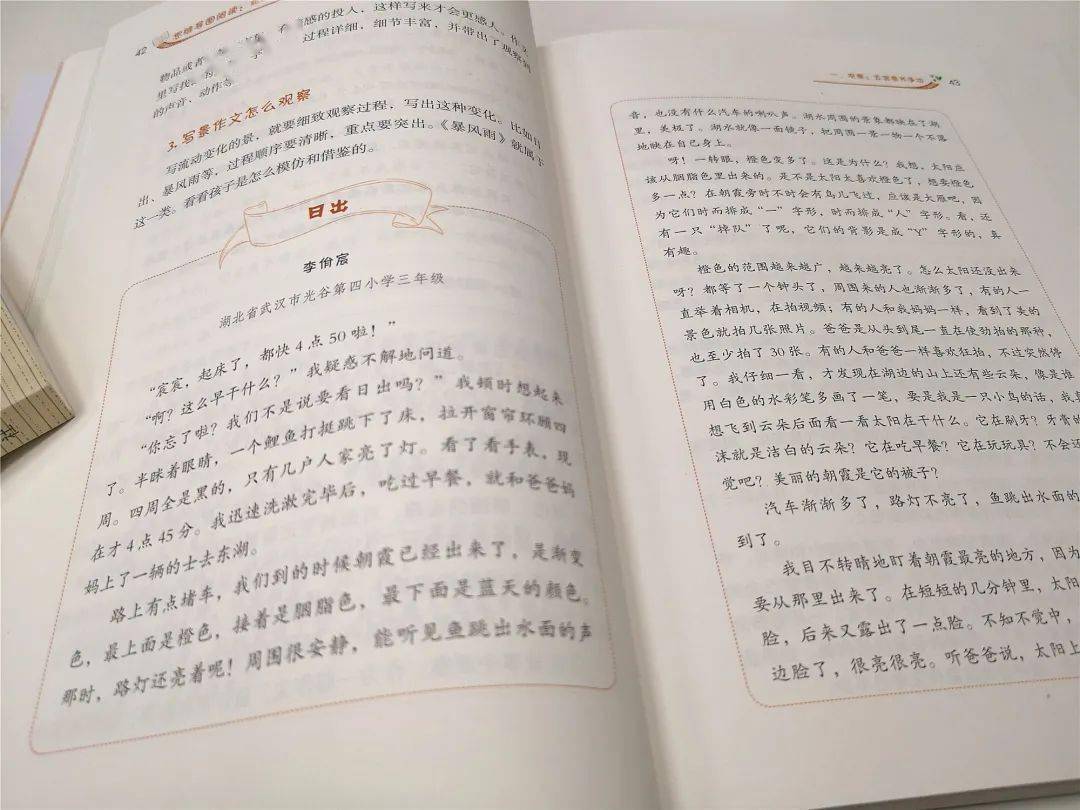 42
思维导图阅读：
感的投入，这样写来才会更感人。作文
物品或者
里写找、
过程详细，细节丰富，并带出了观察到
的声音、动作等
3. 写景作文怎么观察
写流动变化的景，就要细致观察过程，写出这种变化。比如日
出、暴风雨等，过程顺序要清晰，重点要突出。《暴风雨》就属于
这一类。看看孩子是怎么模仿和借鉴的。
日出
李佾宸
湖北省武汉市光谷第四小学三年级
“宸宸，起床了，都快4点50啦！”
“啊？这么早干什么？”我疑惑不解地问道。
“你忘了啦？我们不是说要看日出吗？”我顿时想起来
了。半眯着眼睛，一个鲤鱼打挺跳下了床，拉开窗帘环顾四
周。四周全是黑的，只有几户人家亮了灯。看了看手表，现
在才4点45分。我迅速洗漱完毕后，吃过早餐，就和爸爸妈
妈上了一辆的士去东湖。
路上有点堵车，我们到的时候朝霞已经出来了，是渐变
色，最上面是橙色，接着是胭脂色，最下面是蓝天的颜色。
那时，路灯还亮着呢！周围很安静，能听见鱼跳出水面的声
43
音，也没有什么汽车的喇叭声。湖水周围的景象都映在了湖
里，美极了。湖水就像一面镜子，把周围一景一物一个不落
地映在自己身上。
呀！一转眼，橙色变多了。这是为什么？我想，太阳应
该从胭脂色里出来的。是不是太阳太喜欢橙色了，想要橙色
多一点？在朝霞旁时不时会有鸟儿飞过，应该是大雁吧，因
为它们时而排成“一”字形，时而排成“人”字形。看，还
有一只“掉队”了呢，它们的背影是成“Y”字形的，真
有趣。
橙色的范围越来越广，越来越亮了。怎么太阳还没出来
呀？都等了一个钟头了，周围来的人也渐渐多了，有的人一
直举着相机，在拍视频；有的人和我妈妈一样，看到了美的
景色就拍几张照片。爸爸是从头到尾一直在使劲拍的那种，
也至少拍了30张。有的人和爸爸一样喜欢狂拍，不过突然停
了。我仔细一看，才发现在湖边的山上还有些云朵，像是谁
用白色的水彩笔多画了一笔，要是我是一只小鸟的话，我真
想飞到云朵后面看一看太阳在干什么。它在刷牙？牙膏的
沫就是洁白的云朵？它在吃早餐？它在玩玩具？不会还
觉吧？美丽的朝霞是它的被子？
汽车渐渐多了，路灯不亮了，鱼跳出水面的
到了。
我目不转睛地盯着朝霞最亮的地方，因为
要从那里出来了。在短短的几分钟里，太阳
脸，后来又露出了一点脸。不知不觉中，
边脸了，很亮很亮。听爸爸说，太阳上